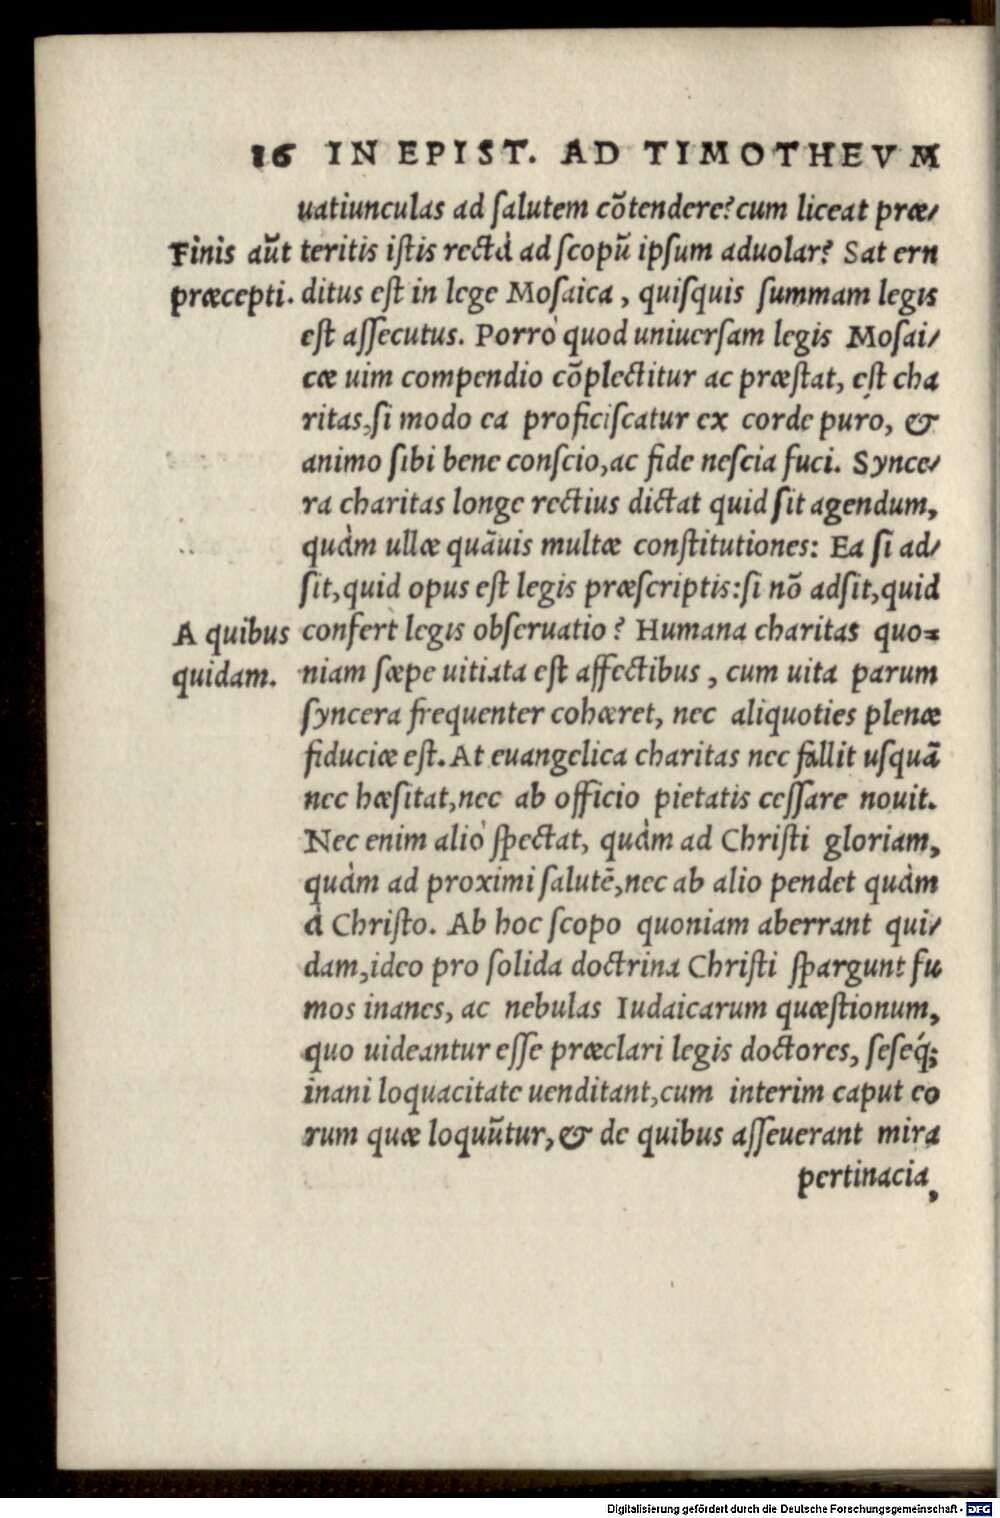 16 IN EPIST. AD TIMOTHEVM
uatiunculas ad ſalutem cõtendere? cum liceat præ/
Finis aũt
teritis iſtis rectà ad ſcopũ ipſum aduolar? Sat eru
præcepti.
ditus eſt in lege Moſaica, quiſquis ſummam legis
eſt aſſecutus. Porrò quod uniuerſam legis Moſai/
cæ uim compendio cõplectitur ac præſtat, eſt cha
ritas, ſi modo ea proficiſcatur ex corde puro, &
animo ſibi bene conſcio, ac fide neſcia fuci. Synce/
ra charitas longe rectius dictat quid ſit agendum,
quàm ullæ quãuis multæ conſtitutiones: Ea ſi ad/
ſit, quid opus eſt legis præſcriptis: ſi nõ adſit, quid
A quibus
confert legis obſeruatio? Humana charitas quo=
quidam.
niam ſæpe uitiata eſt affectibus, cum uita parum
ſyncera frequenter cohæret, nec aliquoties plenæ
fiduciæ eſt. At euangelica charitas nec fallit uſquã
nec hæſitat, nec ab officio pietatis ceſſare nouit.
Nec enim aliò ſpectat, quàm ad Chriſti gloriam,
quàm ad proximi ſalutẽ, nec ab alio pendet quàm
à Chriſto. Ab hoc ſcopo quoniam aberrant qui/
dam, ideo pro ſolida doctrina Chriſti ſpargunt fu
mos inanes, ac nebulas Iudaicarum quæſtionum,
quo uideantur eſſe præclari legis doctores, ſeſeq́;
inani loquacitate uenditant, cum interim caput eo
rum quæ loquũtur, & de quibus aſſeuerant mira
pertinacia,
Digitalisierung gefördert durch die Deutsche Forschungsgemeinschaft - DFG